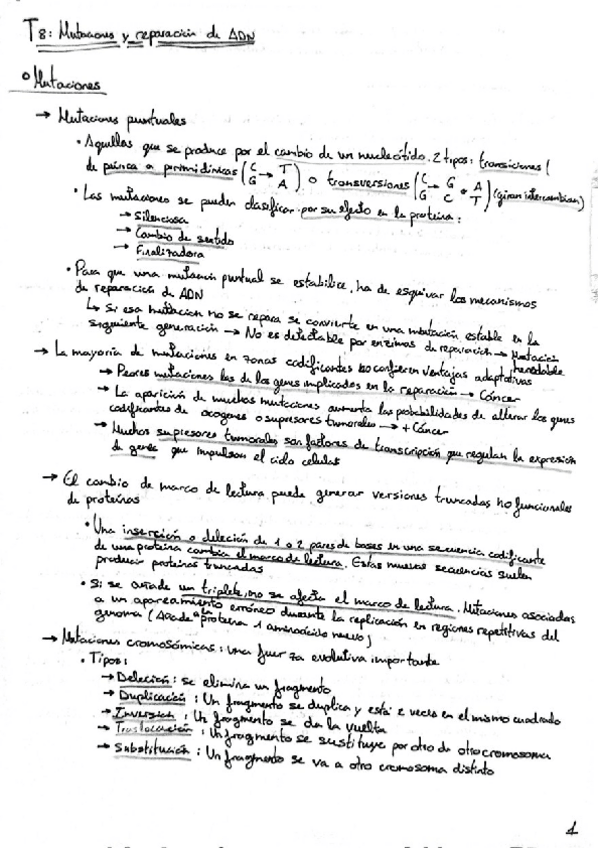 T8: Mutaciones y reparación de ADN
° Mutaciones
→ Mutaciones puntuales
· Aquellas que se produce por el cambio de un nucleótido. 2 tipos: transiciones (
de púrica a pirimidínicas (C/G → T/A) o transversiones (C/G → G/C o A/T) (giran intercambian)
· Las mutaciones se pueden clasificar por su efecto en la proteína:
→ Silenciosa
→ Cambio de sentido
→ Finalizadora
· Para que una mutación puntual se estabilice, ha de esquivar los mecanismos
de reparación de ADN
↳ Si esa mutación no se repara se convierte en una mutación estable en la
siguiente generación → No es detectable por enzimas de reparación → Mutación
heredable
→ La mayoría de mutaciones en zonas codificantes no confieren ventajas adaptativas
→ Peores mutaciones las de los genes implicados en la reparación → Cáncer
→ La aparición de muchas mutaciones aumenta las probabilidades de alterar los genes
codificantes de ocogenes o supresores tumorales → + Cáncer
→ Muchos supresores tumorales son factores de transcripción que regulan la expresión
de genes que impulsan el ciclo celular
→ El cambio de marco de lectura puede generar versiones truncadas no funcionales
de proteínas
· Una inserción o deleción de 1 o 2 pares de bases en una secuencia codificante
de una proteína cambia el marco de lectura. Estas nuevas secuencias suelen
producir proteínas truncadas
· Si se añade un triplete, no se afecta el marco de lectura. Mutaciones asociadas
a un apareamiento erróneo durante la replicación en regiones repetitivas del
genoma (Añade a la proteína 1 aminoácido nuevo)
→ Mutaciones cromosómicas: una fuerza evolutiva importante
· Tipos:
→ Deleción: se elimina un fragmento
→ Duplicación: Un fragmento se duplica y está 2 veces en el mismo cuadrado
→ Inversión: Un fragmento se da la vuelta
→ Traslocación: Un fragmento se sustituye por otro de otro cromosoma
→ Substitución: Un fragmento se va a otro cromosoma distinto
1